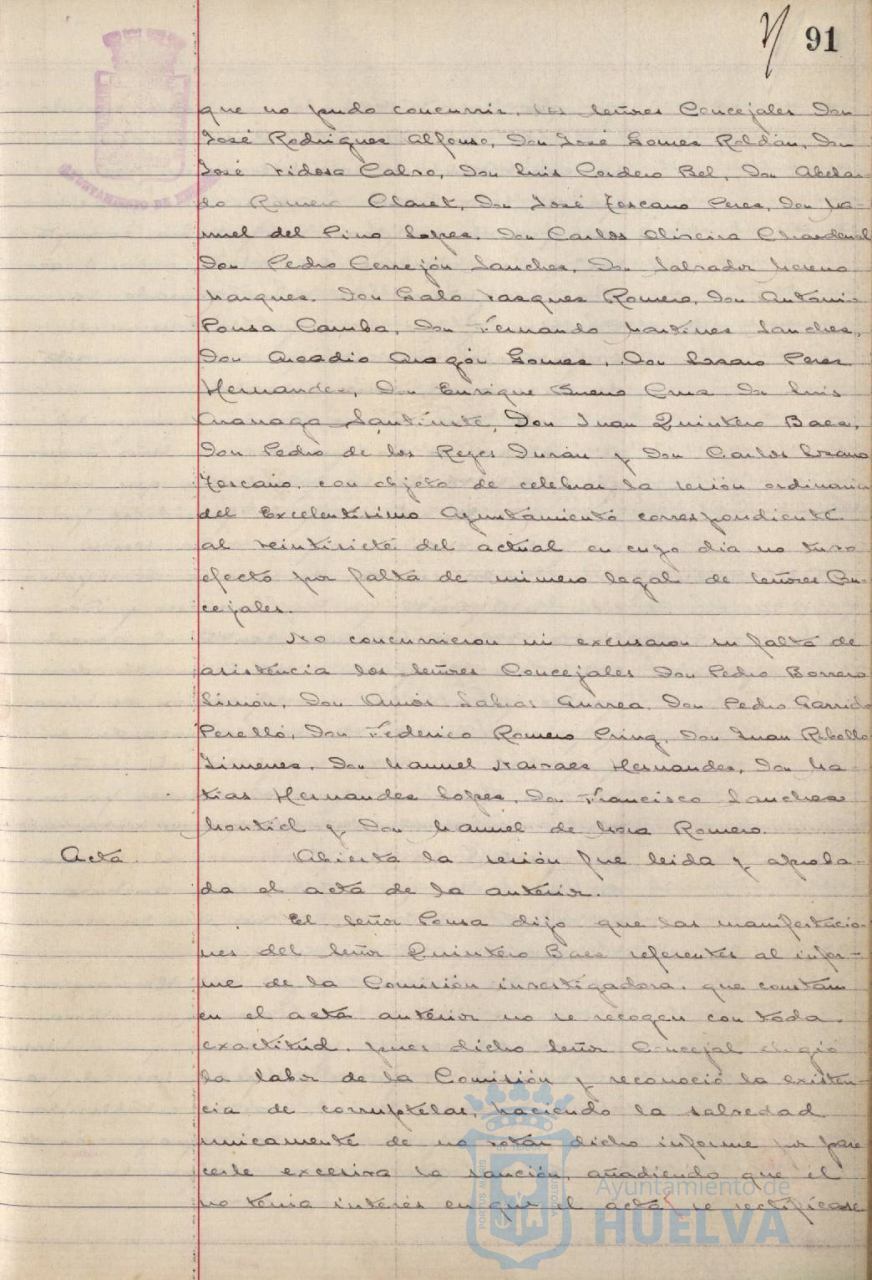 91
que no pudo concurrir, los señores Concejales Don
José Rodrigues Alfonso, Don José Gomes Roldán, Don
José Vidosa Calvo, Don Luis Cordero Bel, Don Abelar-
do Romero Claret, Don José Toscano Peres, Don Ma-
nuel del Pino Lopes, Don Carlos Oliveira Chardenal
Don Pedro Cerrejón Sanches, Don Salvador Moreno
Marques, Don Galo Vasques Romero, Don Antonio
Ponsa Camba, Don Fernando Martines Sanches,
Don Arcadio Aragón Gomes, Don Peres
Hernandes, Don Enrique Bueno Crus Don Luis
Aranaga Santiuste, Don Juan Quintero Baes,
Don Pedro de los Reyes Durán y Don Carlos Losano
Toscano, con objeto de celebrar la sesión ordinaria
del Excelentísimo Ayuntamiento correspondiente
al veintisiete del actual en cuyo dia no tuvo
efecto por falta de número legal de señores Con-
cejales.
No concurrieron ni excusaron su falta de
asistencia los señores Concejales Don Pedro Borrero
Limón, Don Amós Gurrea, Don Pedro Garrido
Perelló, Don Federico Romero Pring, Don Juan Rebollo
Jimenes, Don Manuel Narvaes Hernandes, Don Ma-
tias Hernandes Lopes, Don Francisco Sanches
Montiel y Don Manuel de Mora Romero.
Acta.
Abierta la sesión fue leida y aproba-
da el acta de la anterior.
El señor Ponsa dijo que las manifestacio-
nes del señor Quintero Baes referentes al infor-
me de la Comisión investigadora, que constan
en el acta anterior no se recogen con toda
exactitud, pues dicho señor Concejal elogió
la labor de la Comisión y reconoció la existen-
cia de corruptelas, haciendo la salvedad
unicamente de no votar dicho informe por pare
cerle excesiva la sanción, añadiendo que el
no tenia interés en que el acta se rectificase
Ayuntamiento de
HUELVA